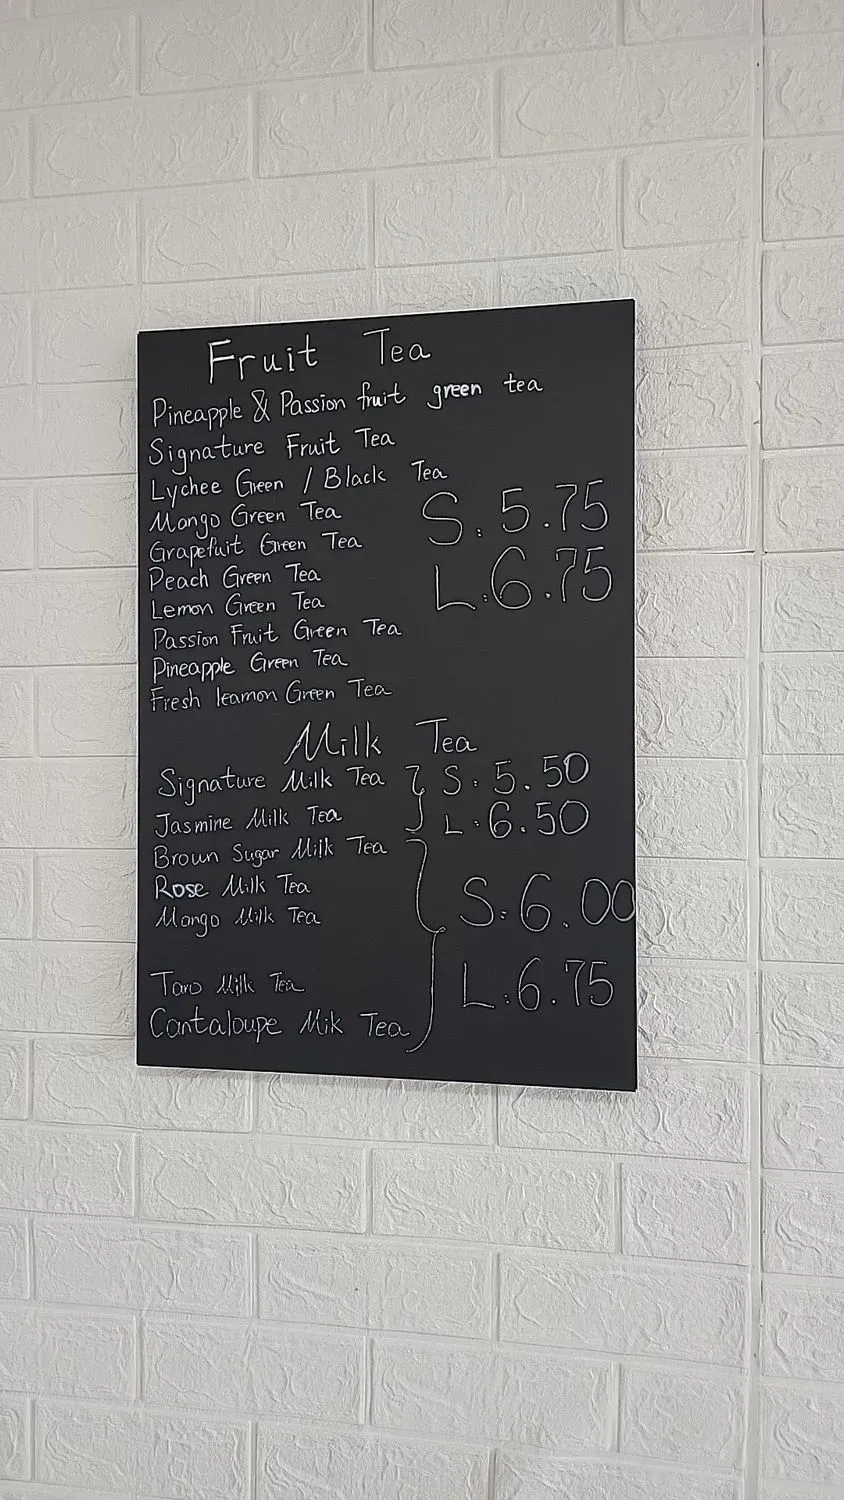 Fruit Tea
Pineapple & Passion fruit green tea
Signature Fruit Tea
Lychee Green / Black Tea
Mango Green Tea
S: 5.75
Grapefuit Green Tea
Peach Green Tea
L: 6.75
Lemon Green Tea
Passion Fruit Green Tea
Pineapple Green Tea
Fresh leamon Green Tea
Milk Tea
Signature Milk Tea S: 5.50
Jasmine Milk Tea L: 6.50
Broun Sugar Milk Tea
Rose Milk Tea
S: 6.00
Mango Milk Tea
Taro Milk Tea L: 6.75
Cantaloupe Mik Tea